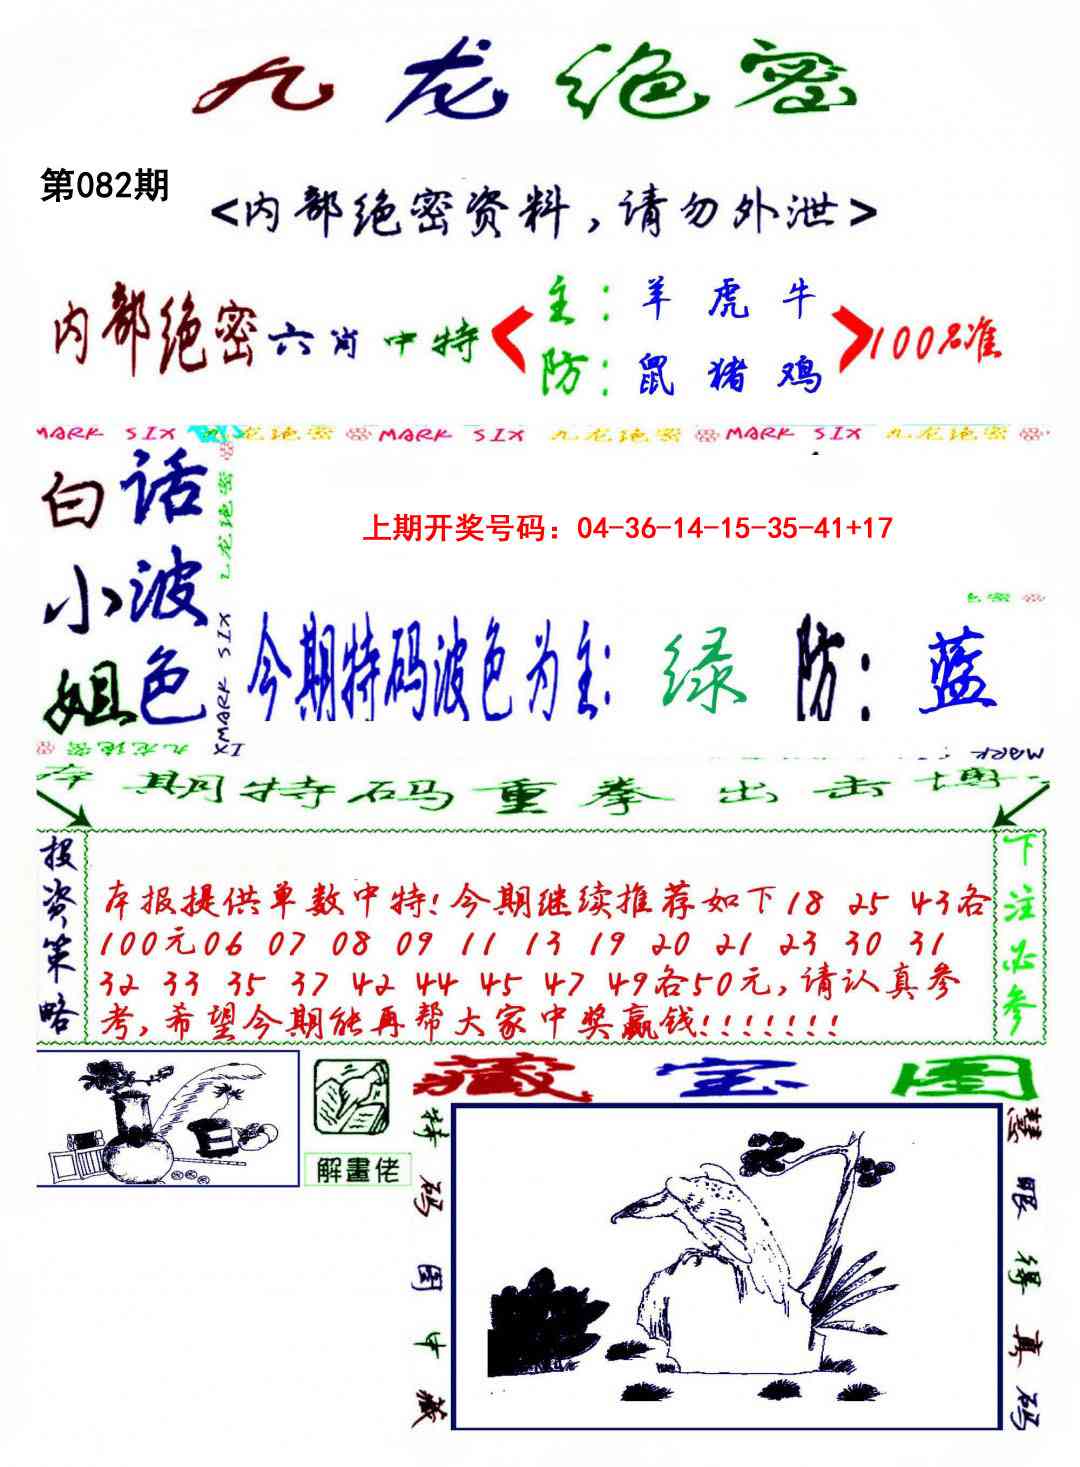 九龙绝密
第082期
<内部绝密资料,请勿外泄>
内部绝密六肖中特
主:羊 虎 牛
防:鼠 猪 鸡
100%准
MARK SIX 九龙绝密 MARK SIX 九龙绝密 MARK SIX 九龙绝密
九龙绝密
MARK SIX
白话
小波
姐色
上期开奖号码：04-36-14-15-35-41+17
今期特码波色为主: 绿 防: 蓝
九龙绝密
MARK
本期特码重拳出击博
投资策略
本报提供单数中特!今期继续推荐如下18 25 43各
100元06 07 08 09 11 13 19 20 21 23 30 31
32 33 35 37 42 44 45 47 49各50元,请认真参
考,希望今期能再帮大家中奖赢钱!!!!!!!
下注必参
解畫佬
藏宝图
特码图中藏
慧眼得真码